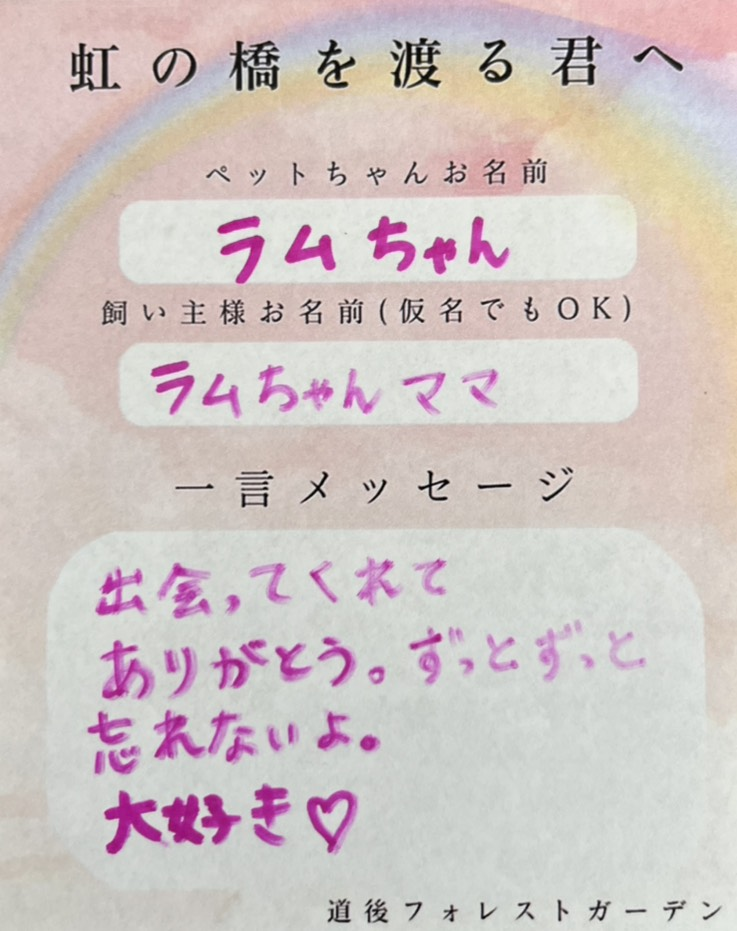 虹の橋を渡る君へ
ペットちゃんお名前
ラムちゃん
飼い主様お名前(仮名でもOK)
ラムちゃんママ
一言メッセージ
出会ってくれて
ありがとう。ずっとずっと
忘れないよ。
大好き♡
道後フォレストガーデン